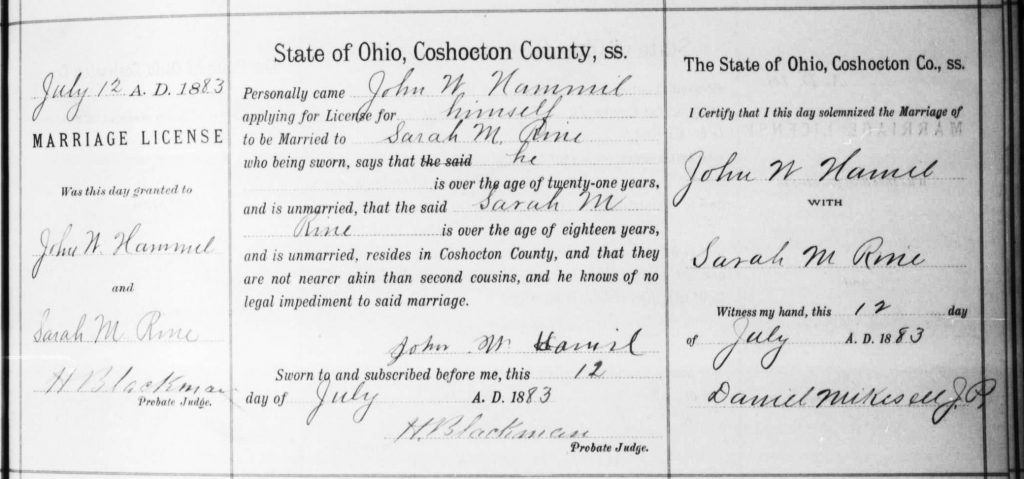 July 12 A. D. 1883
MARRIAGE LICENSE
Was this day granted to
John W. Hammil
and
Sarah M Rine
H Blackman
Probate Judge.
State of Ohio, Coshocton County, ss.
Personally came John W Hammil
applying for License for himself
to be Married to Sarah M. Rine
who being sworn, says that the said he
is over the age of twenty-one years,
and is unmarried, that the said Sarah M
Rine is over the age of eighteen years,
and is unmarried, resides in Coshocton County, and that they
are not nearer akin than second cousins, and he knows of no
legal impediment to said marriage.
John W Hamil
Sworn to and subscribed before me, this 12
day of July A. D. 1883
H. Blackman
Probate Judge.
The State of Ohio, Coshocton Co., ss.
I Certify that I this day solemnized the Marriage of
John W Hamil
WITH
Sarah M Rine
Witness my hand, this 12 day
of July A. D. 1883
Daniel Mikesell J. P.